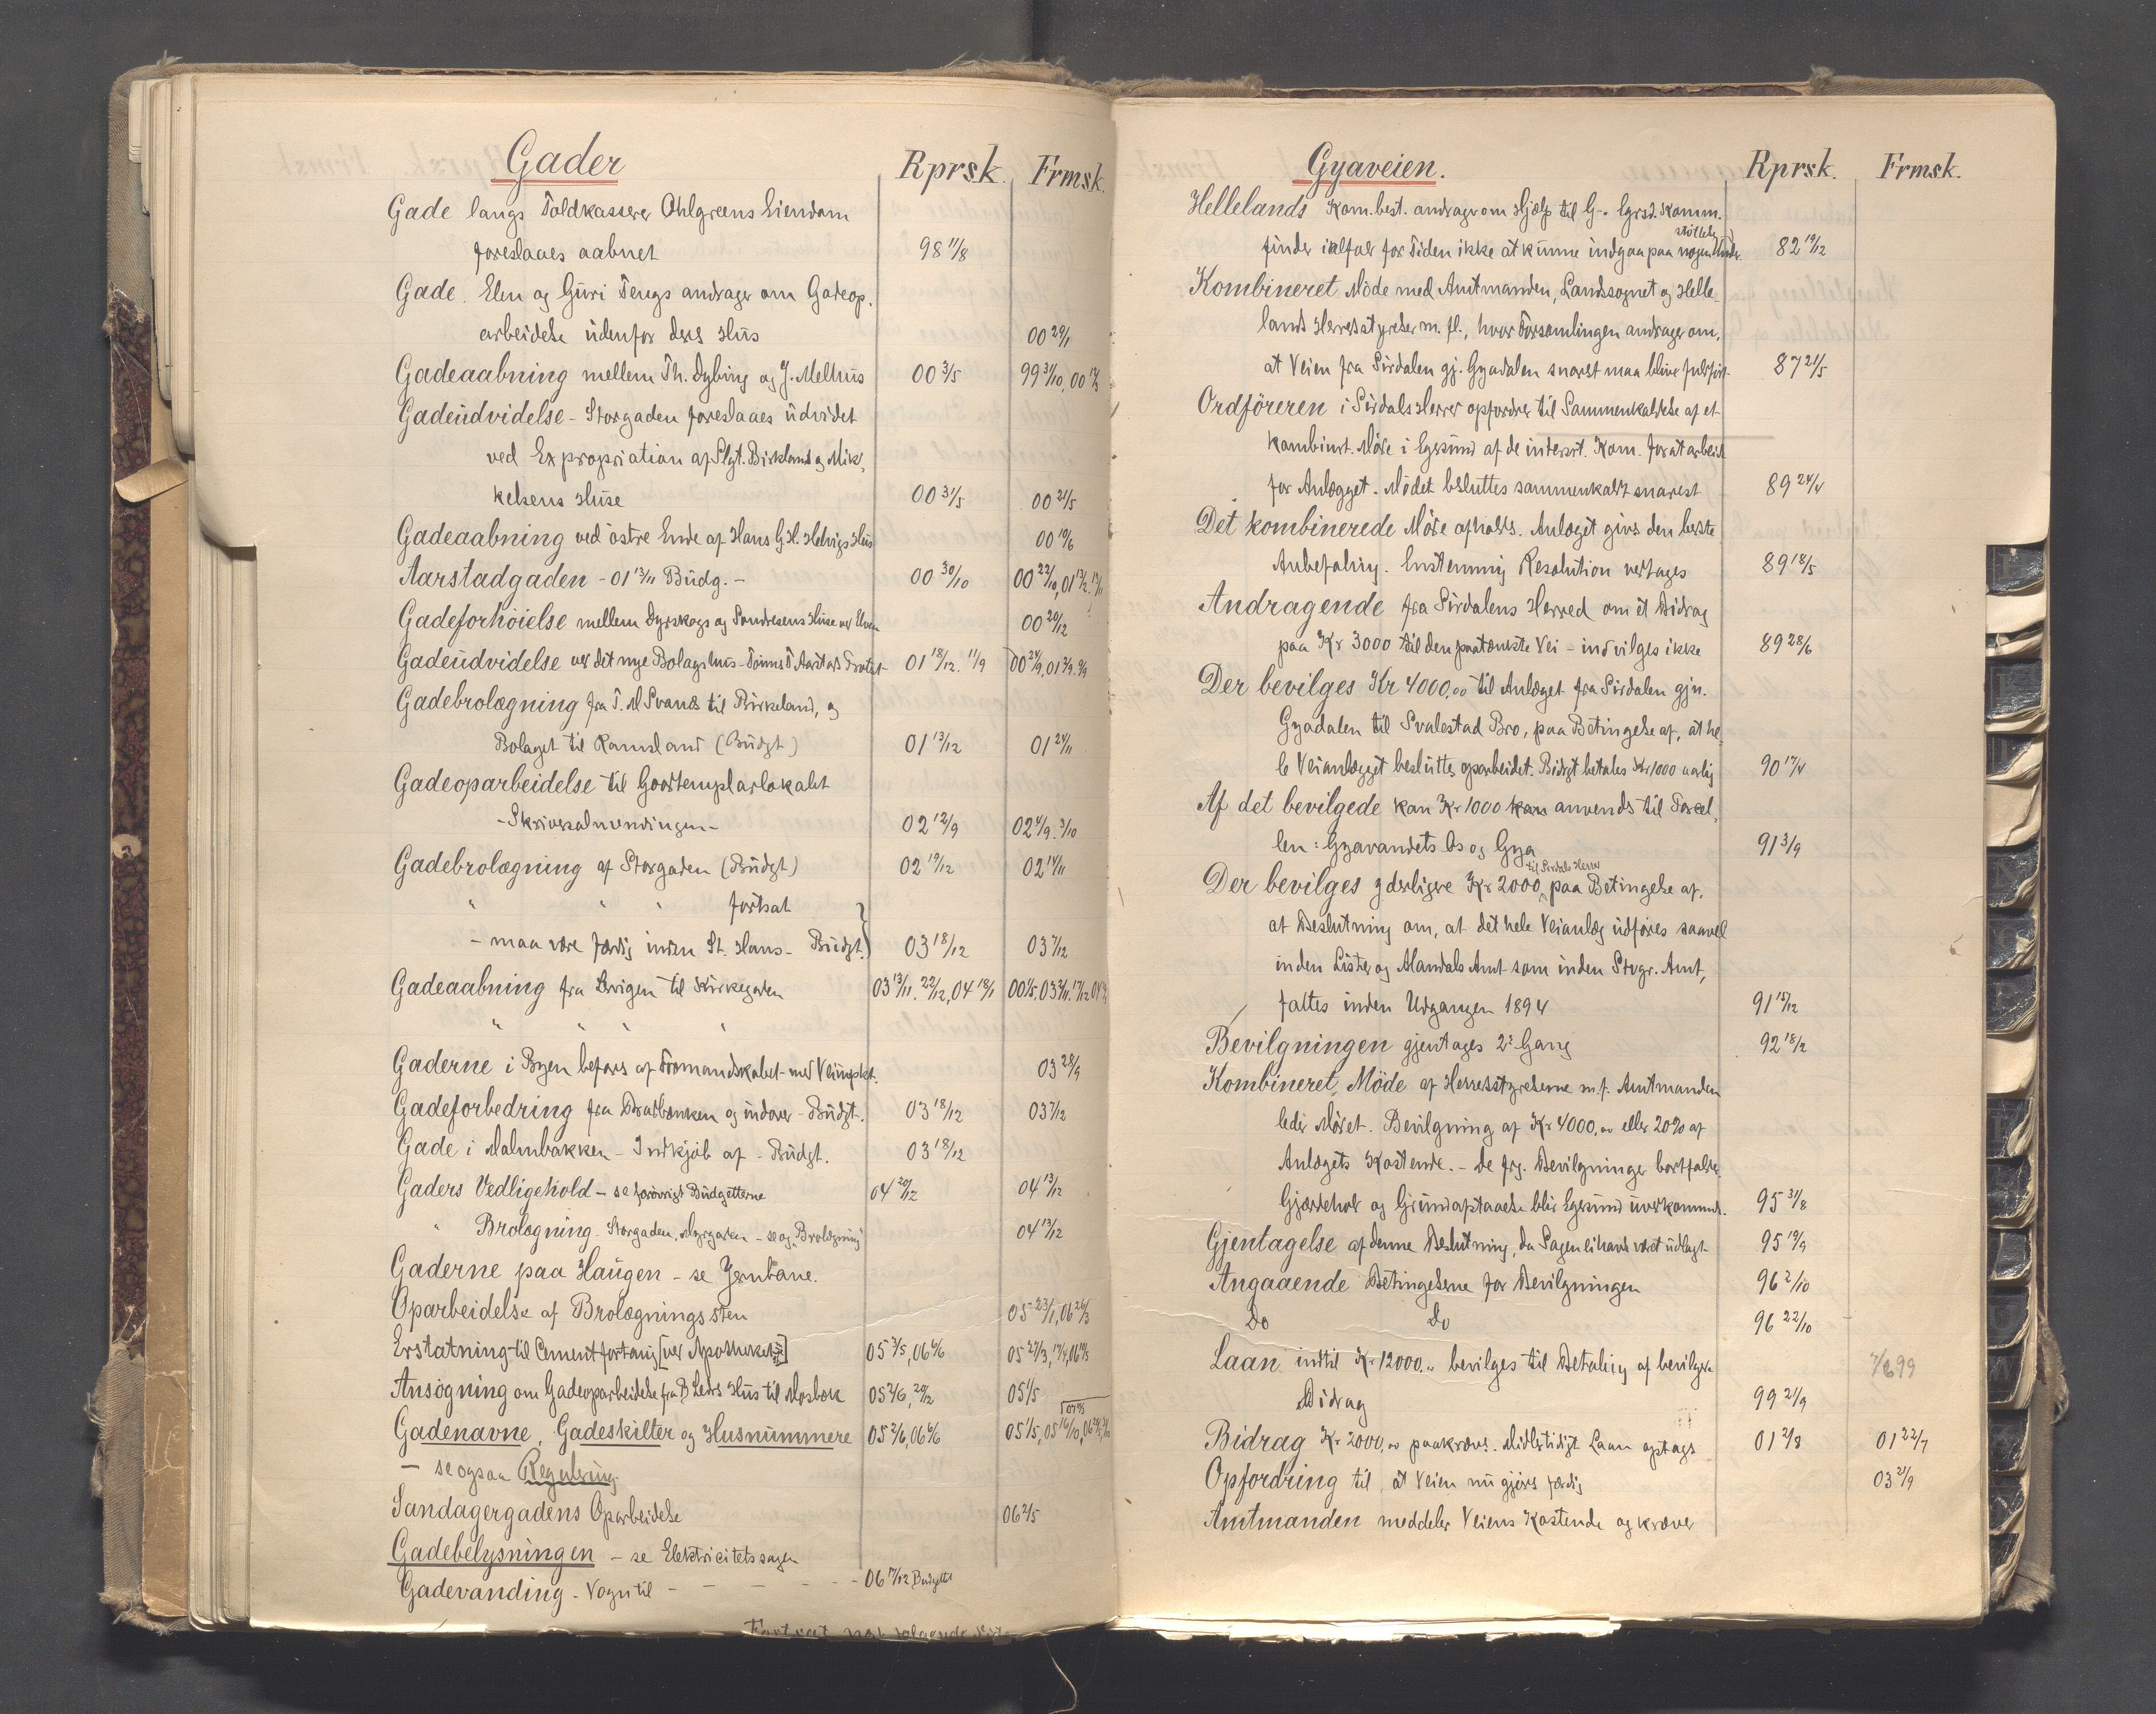 Gader
Rprsk. Frmsk.
Gade langs Toldkasserer Ohlgreens Eiendom
foreslaaes aabnet 98 11/8
Gade. Elen og Guri Tengs andrager om Gadeop-
arbeidelse udenfor deres Hus 00 29/1
Gadeaabning mellem Th. Dybing og J. Melhus 00 3/5 99 31/10, 00
Gadeudvidelse - Storgaden foreslaaes udvidet
ved Expropriation af Slgt. Birkland og Mik-
kelsens Huse 00 31/5 00 21/5
Gadeaabning ved østre Ende af Hans G. H. Helvigs Hus 00 19/6
Aarstadgaden - 01 13/11 Budg. - 00 30/10 00 22/10, 01 13/2
Gadeforhøielse mellem Dyrskogs og Huse ved Elven 00 20/12
Gadeudvidelse ved det nye Bolagshus - 01 18/12. 11/9 00 24/9, 01
Gadebrolægning fra T. M Svands til Birkeland, og
Bolaget til Ramsland (Budgt) 01 13/12 01 24/11
Gadeoparbeidelse til Goodtemplarlokalet
- Skriveralmendingen - 02 12/9 02 4/9. 3/10
Gadebrolægning af Storgaden (Budgt) 02 19/12 02 14/11
" " " fortsat
- maa være færdig inden St. Hans - Budgt. 03 18/12 03 7/12
Gadeaabning fra til Kirkegaden 03 13/11. 22/12, 04 18/1
" " " "
Gaderne i Byen befares af Formandskabet med Veiinspkt. 03 28/9
Gadeforbedring fra og indover - Budgt. 03 18/12 03 7/12
Gade i Malmbakken - Indkjøb af - Budgt. 03 18/12
Gaders Vedligehold - se forøvrigt Budgetterne 04 20/12 04 13/12
" Brolægning - Storgaden, Myrgaden - se og "Brolægning" 04 13/12
Gaderne paa Haugen - se Jernbane.
Oparbeidelse af Brolægningssten 05 23/1, 06 26/3
Erstatning til Cementfortaug [ved Apotheket] 05 3/5, 06 6/6 05 27/3,
Ansøgning om Gadeoparbeidelse fra Hus til Mosbæk 05 2/6, 20/12 05 1/5
Gadenavne, Gadeskilter og Husnummere 05 2/6, 06 6/6 05 1/5, 05 16/10,
- se ogsaa Regulering
Sandagergadens Oparbeidelse 06 2/5
Gadebelysningen - se Elektricitetssagen
Gadevanding - Vogn til - - - - - 06 7/12 Budgettet
Fortsat næst følgende Side
Gyaveien.
Rprsk. Frmsk.
Hellelands Kom.best. andrager om Hjælp til G-. Egrsd. Komm.
finder ialfal for Tiden ikke at kunne indgaa paa nogen 82 19/12
Kombineret Møde med Amtmanden, Landssognet og Helle-
lands Herredsstyrelser m. fl., hvor Forsamlingen andrager om,
at Veien fra Sirdalen gj. Gyadalen snarest maa blive fuldført 87 21/5
Ordføreren i Sirdals Herred opfordrer til Sammenkaldelse af et
kombinert. Møde i Egersund af de interesrt. Kom. for at arbeide
for Anlægget. Mødet besluttes sammenkaldt snarest 89 24/4
Det kombinerede Møde afholdes. Anlæget gives den beste
Anbefaling. Enstemmig Resolution vedtages 89 18/5
Andragende fra Sirdalens Herred om et Bidrag
paa Kr 3000 til den paatænkte Vei - indvilges ikke 89 28/6
Der bevilges Kr 4000,00 til Anlæget fra Sirdalen gjn.
Gyadalen til Svalestad Bro, paa Betingelse af, at he-
le Veianlægget besluttes oparbeidet. Bidrgt betales Kr 1000 aarlig 90 17/4
Af det bevilgede kan Kr 1000 kan anvendes til Parcel-
len: Gyavandets Os og Gya 91 3/9
til Sirdals Herred
Der bevilges yderligere Kr 2000, paa Betingelse af,
at Beslutning om, at det hele Veianlæg udføres saavel
inden Lister og Mandals Amt som inden Stvgr. Amt,
fattes inden Udgangen 1894 91 15/12
Bevilgningen gjentages 2den Gang 92 18/2
Kombineret Møde af Herredsstyrelserne m. f. Amtmanden
leder Mødet. Bevilgning af Kr 4000,00 eller 20% af
Anlægets Kostende. - De frg. Bevilgninger bortfalder.
Gjærdehold og Grundafstaaelse blir Egersund uvedkommd. 95 31/8
Gjentagelse af denne Beslutning, da Sagen ei havde været udlagt 95 19/9
Angaaende Betingelserne for Bevilgningen 96 2/10
Do Do 96 22/10
Laan indtil Kr 12000,00 bevilges til Betaling af bevilgede 7/6 99
Bidrag 99 21/9
Bidrag Kr 2000,00 paakræves. Midlertidigt Laan optages 01 2/8 01 22/7
Opfordring til, at Veien nu gjøres færdig 03 2/9
Amtmanden meddeler Veiens Kostende og kræver